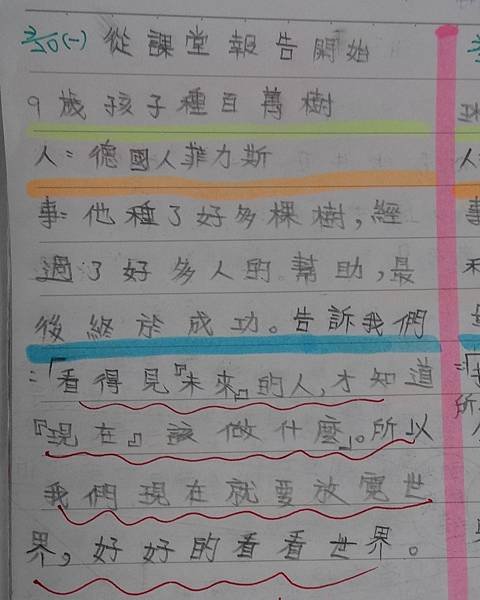 3/30(一) 從課堂報告開始
9歲孩子種百萬樹
人：德國人菲力斯
事：他種了好多棵樹，經
過了好多人的幫助，最
後終於成功。告訴我們
：「看得見『未來』的人，才知道
『現在』該做什麼」。所以
我們現在就要放寬世
界，好好的看看世界。